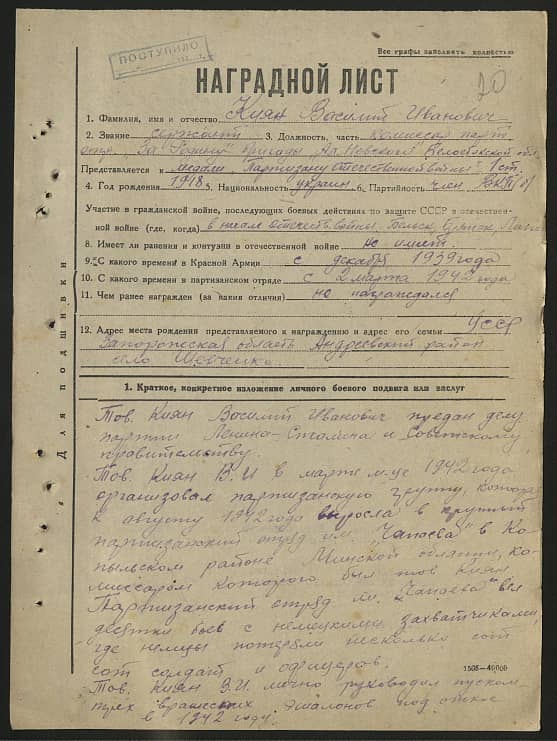 Все графы заполнять полностью
ПОСТУПИЛО
20
НАГРАДНОЙ ЛИСТ
1. Фамилия, имя и отчество Киян Василий Иванович
2. Звание сержант 3. Должность, часть комиссар парт.
отр. "За Родину" бригады "Ал. Невского" Белостокской обл.
Представляется к медали "Партизану отечественной войны" 1 ст.
4. Год рождения 1918 5. Национальность украин 6. Партийность член ВКП/б/
Участие в гражданской войне, последующих боевых действиях по защите СССР и отечествен-
ной войне (где, когда) в начале отечеств. войны, Бельск,
8. Имеет ли ранения и контузии в отечественной войне не имеет.
9. С какого времени в Красной Армии с декабря 1939 года
10. С какого времени в партизанском отряде с 2 марта 1942 года
11. Чем ранее награжден (за какия отличия) не награждался
12. Адрес места рождения представляемого к награждению и адрес его семьи УССР
Запорожская область Андреевский район
село Шевченко.
Для подшивки
1. Краткое, конкретное изложение личного боевого подвига или заслуг
Тов. Киян Василий Иванович предан делу
партии Ленина-Сталина и Советскому
правительству.
Тов. Киян В.И в марте м-це 1942 года
организовал партизанскую группу, которая
к августу 1942 года выросла в крупный
партизанский отряд им. "Чапаева" в Ко-
пыльском районе Минской области, ко-
миссаром которого был тов Киян
Партизанский отряд им. "Чапаева" вел
десятки боев с немецкими захватчиками,
где немцы потеряли несколько сот
сот солдат и офицеров.
1505-40000
Тов. Киян В.И. лично руководил пуском
трех вражеских эшалонов под откос
в 1942 году.